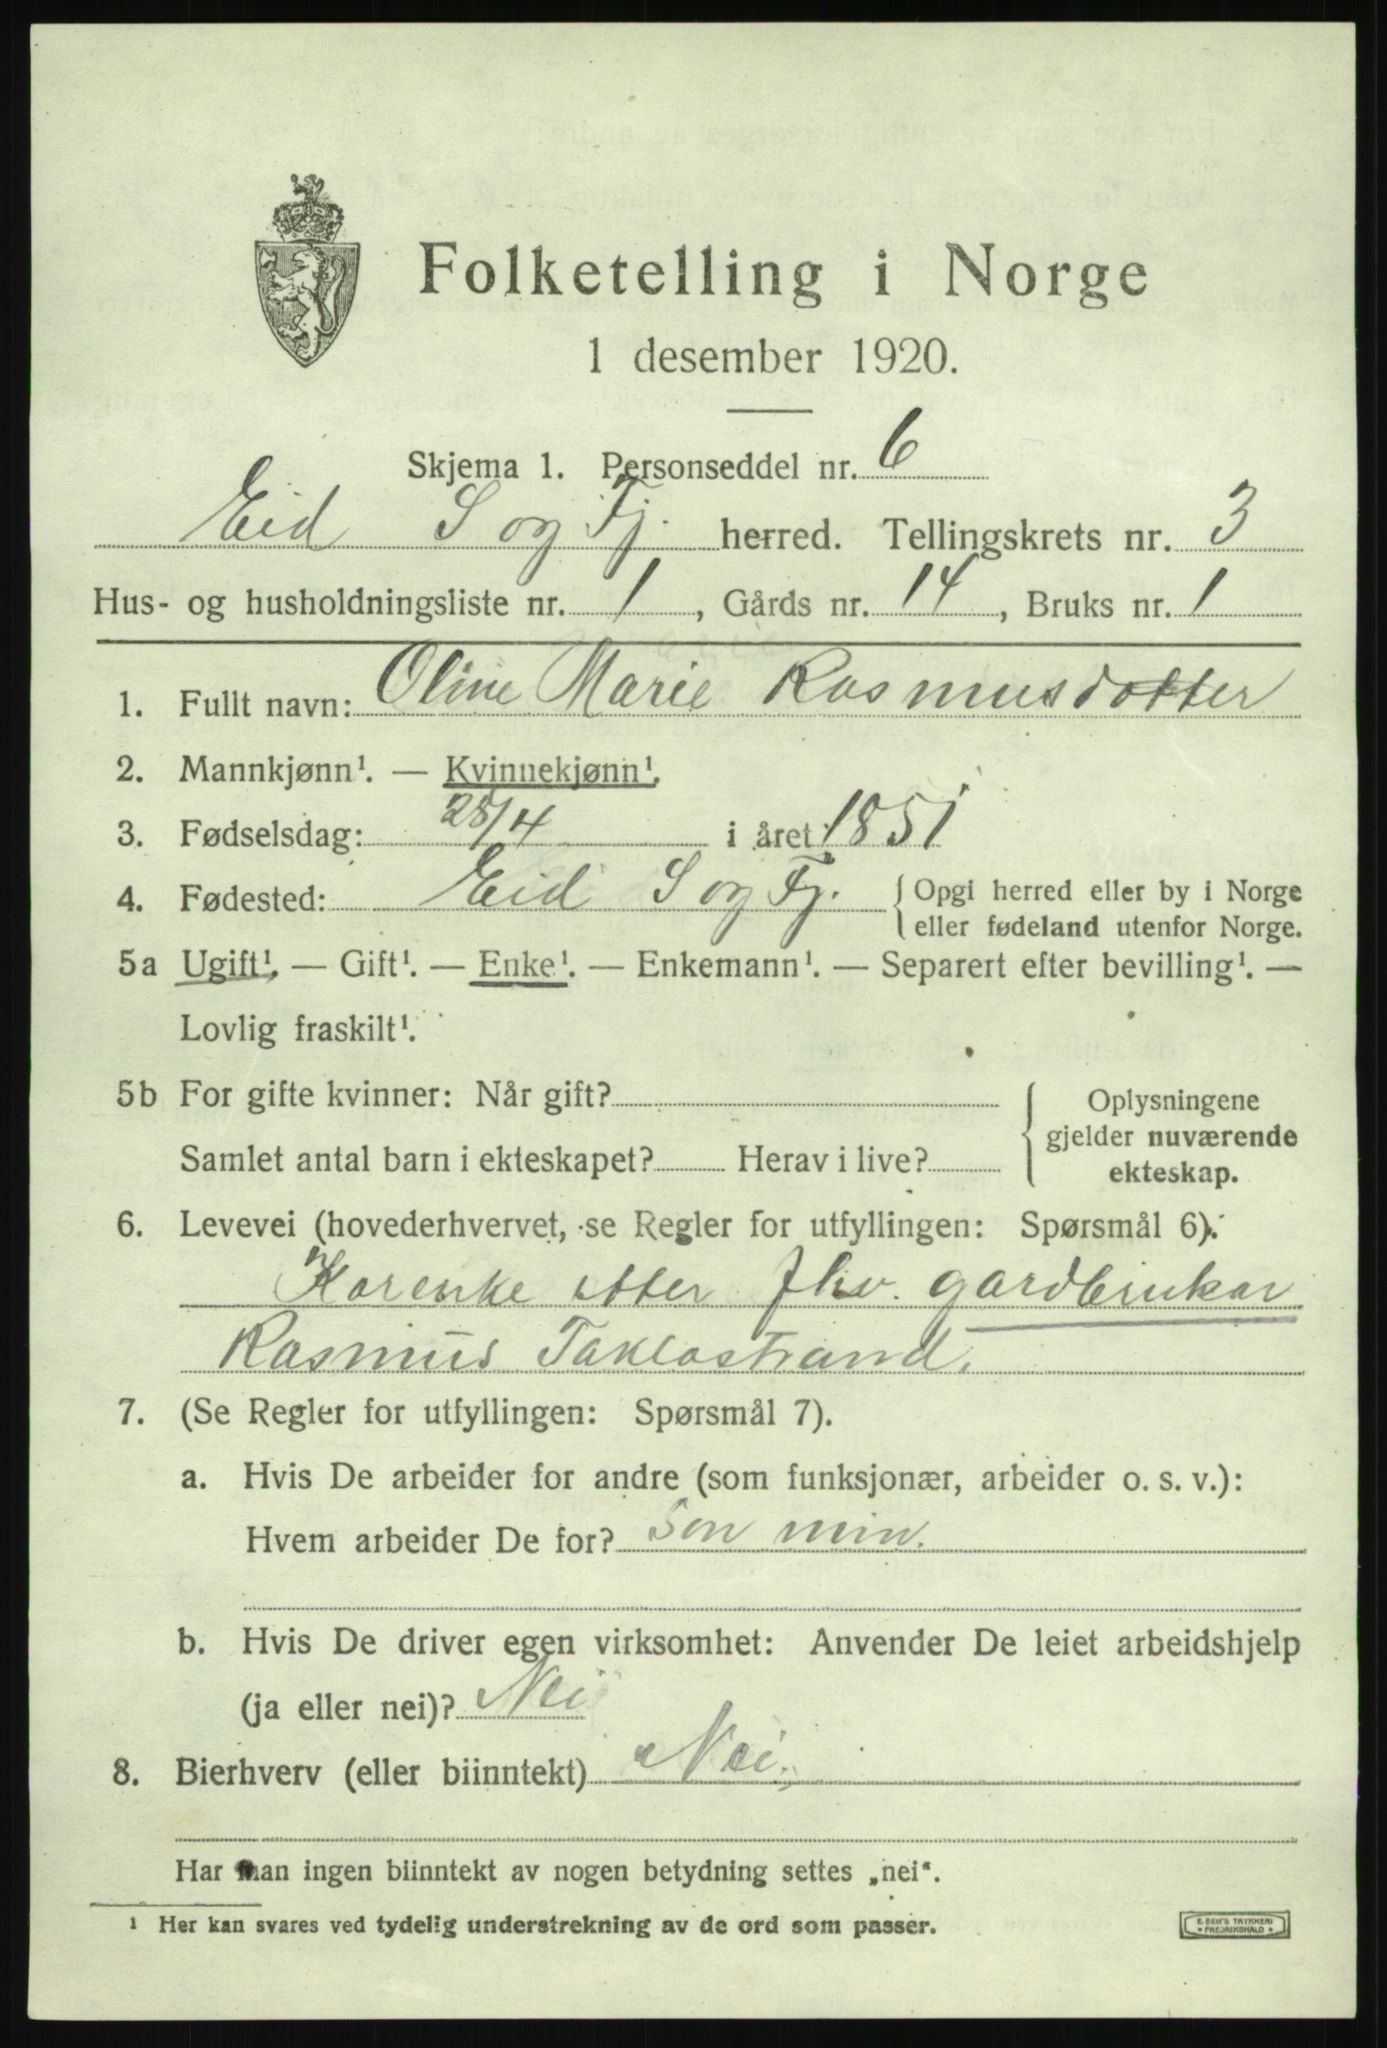 Folketelling i Norge
1 desember 1920.
Skjema 1. Personseddel nr. 6
Eid S og Fj. herred. Tellingskrets nr. 3
Hus- og husholdningsliste nr. 1, Gårds nr. 14, Bruks nr. 1
1. Fullt navn: Oline Marie Rasmusdotter
2. Mannkjønn¹. — Kvinnekjønn¹.
3. Fødselsdag: 28/4 i året 1851
4. Fødested: Eid S og Fj. { Opgi herred eller by i Norge
eller fødeland utenfor Norge.
5a Ugift¹. — Gift¹. — Enke¹. — Enkemann¹. — Separert efter bevilling¹. —
Lovlig fraskilt¹.
5b For gifte kvinner: Når gift? { Oplysningene
gjelder nuværende
Samlet antal barn i ekteskapet? Herav i live?
ekteskap.
6. Levevei (hovederhvervet, se Regler for utfyllingen: Spørsmål 6).
Kårenke etter fhv. gardbrukar
Rasmus Taklostrand.
7. (Se Regler for utfyllingen: Spørsmål 7).
a. Hvis De arbeider for andre (som funksjonær, arbeider o. s. v.):
Hvem arbeider De for? Son min.
b. Hvis De driver egen virksomhet: Anvender De leiet arbeidshjelp
(ja eller nei)? Nei
8. Bierhverv (eller biinntekt) Nei.
Har man ingen biinntekt av nogen betydning settes „nei“.
¹ Her kan svares ved tydelig understrekning av de ord som passer.
E. SEM'S TRYKKERI
* FREDRIKSHALD *